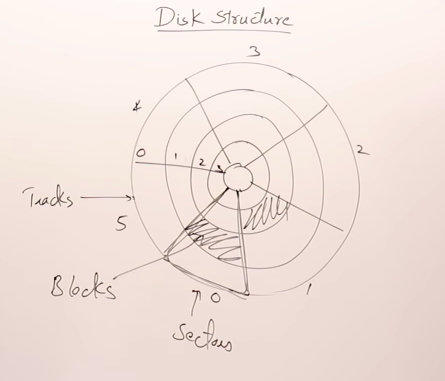 Disk Structure
3
4
2
0 1 2
Tracks
5
Blocks
0
1
Sectors